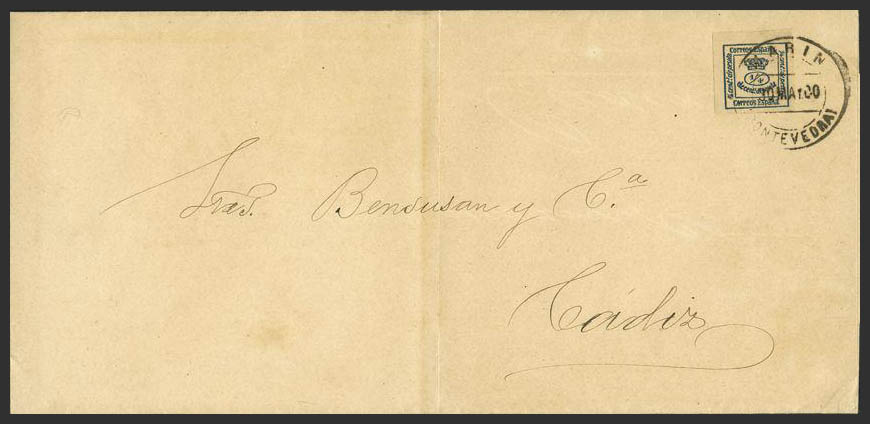 CORREOS ESPAÑA
1/4
de cent. de peseta
CORREOS ESPAÑA
ARIN
MAY 00
ONTEVEDRA)
Sres. Bensusan y C.ª
Cádiz